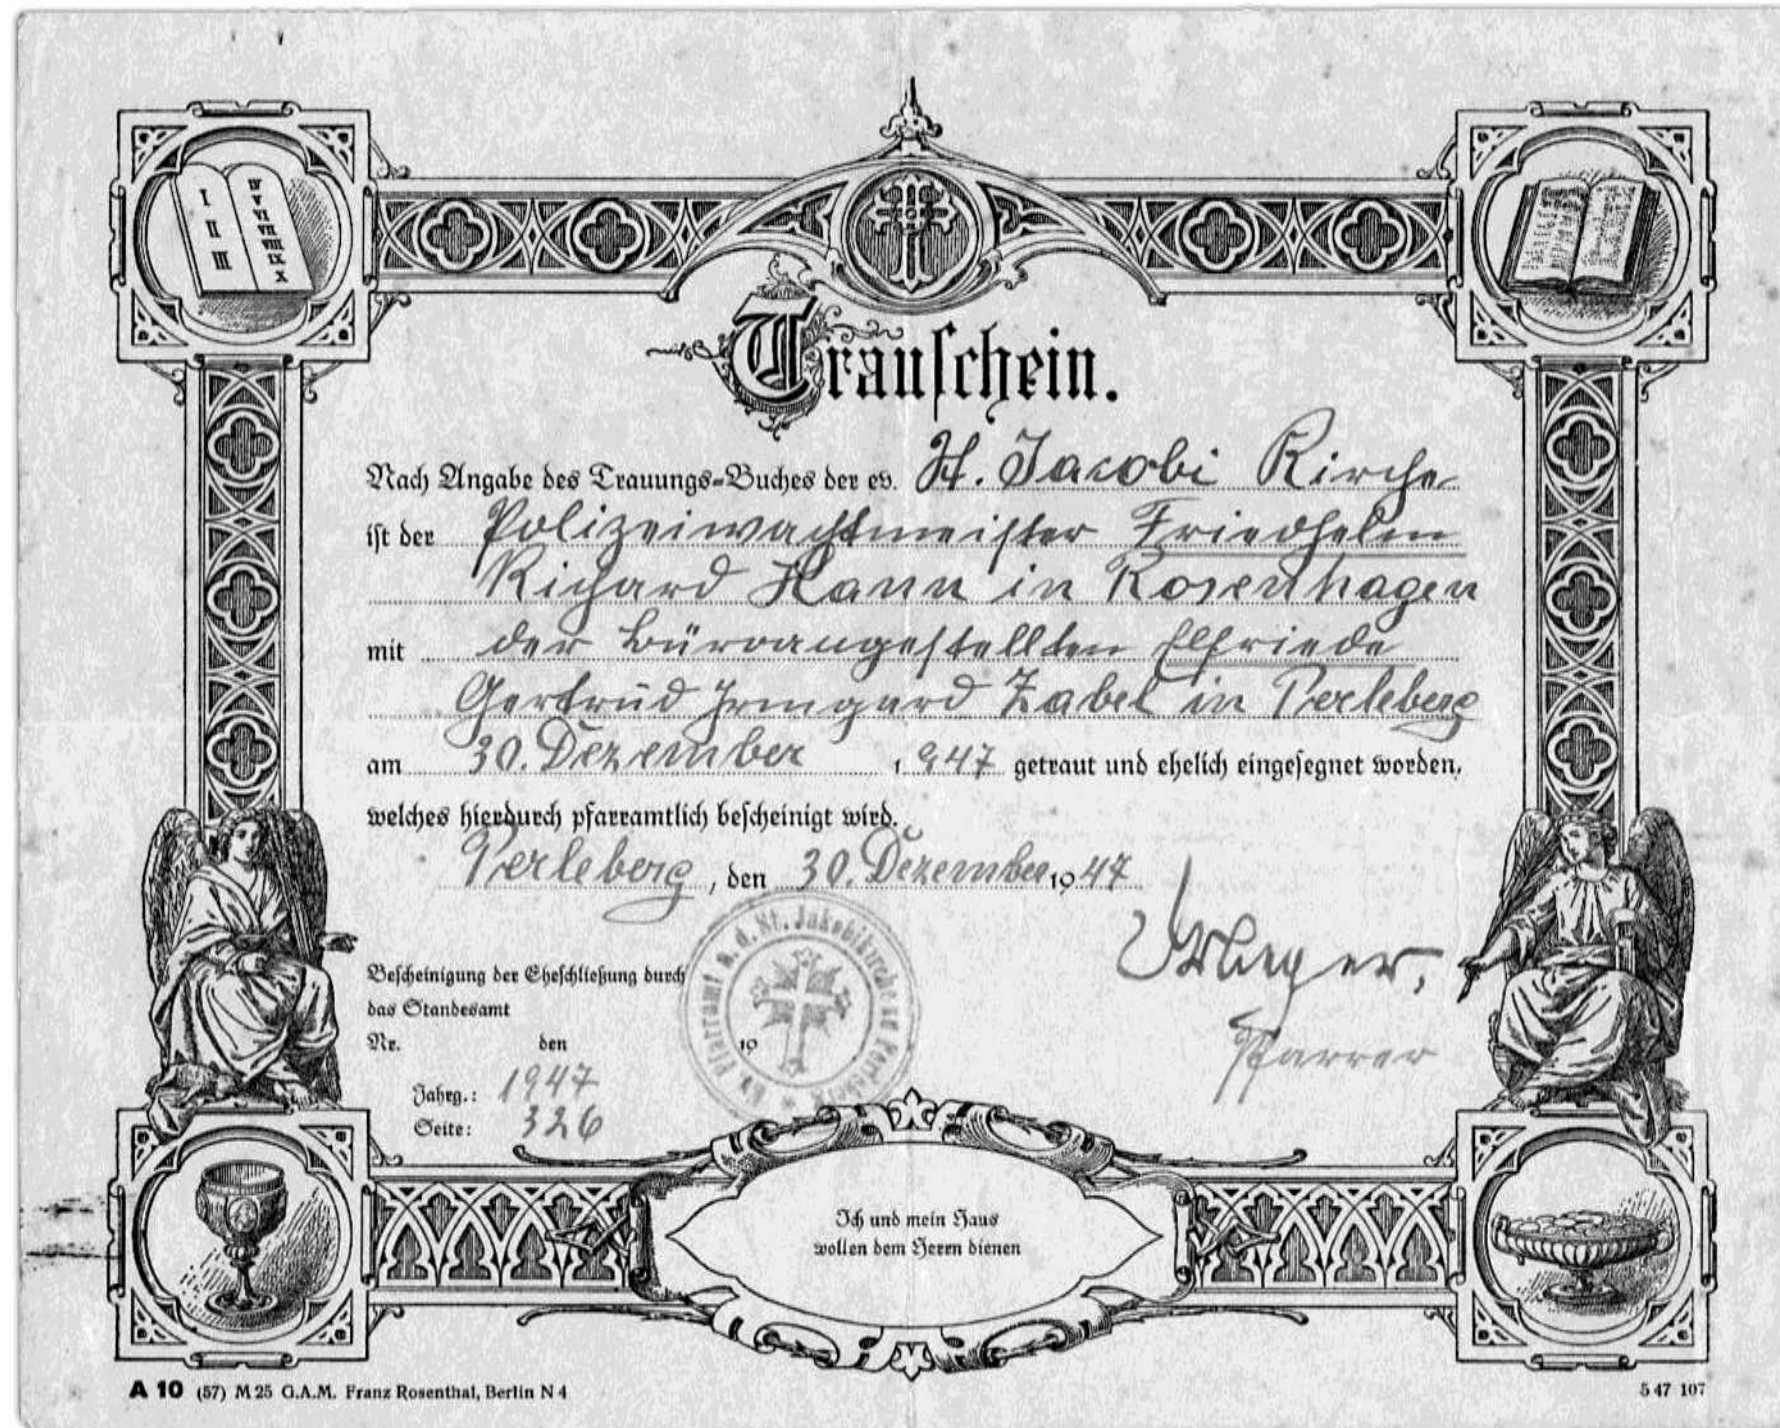 I
II
III
IV
V
VI
VII
VIII
IX
X
Trauschein.
Nach Angabe des Trauungs-Buches der ev. St. Jacobi Kirche
ist der Polizeiwachtmeister Friedhelm
Richard Hann in Rosenhagen
mit der Büroangestellten Elfriede
Gertrud Irmgard Zabel in Perleberg
am 30. Dezember 1947 getraut und ehelich eingesegnet worden,
welches hierdurch pfarramtlich bescheinigt wird.
Perleberg, den 30. Dezember 1947
Ev. Pfarramt a. d. St. Jakobikirche zu Perleberg
Bescheinigung der Eheschließung durch
das Standesamt
Nr. den 19
Pfarrer
Jahrg.: 1947
Seite: 326
Ich und mein Haus
wollen dem Herrn dienen
A 10 (57) M 25 G.A.M. Franz Rosenthal, Berlin N 4
5 47 107